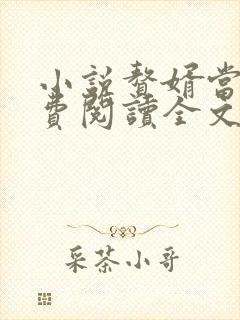 小説贅婿當
費閱讀全文
采茶小哥